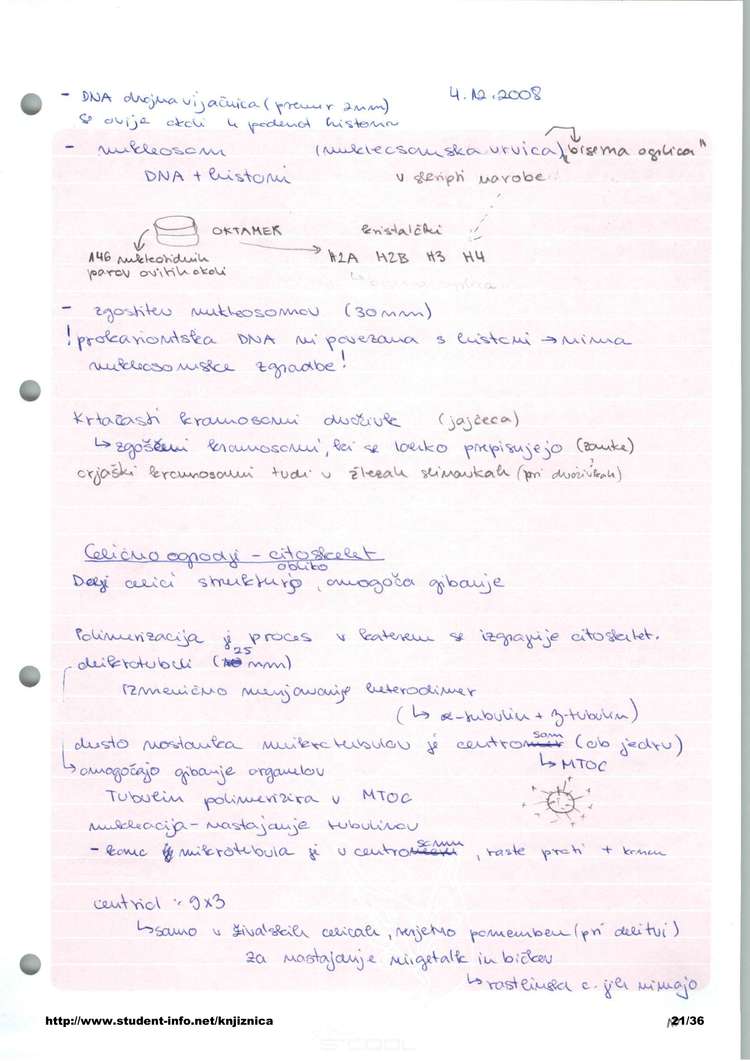 4.12.2008
- DNA dvojna vijačnica (premer 2nm)
se ovije okoli histona
- nukleosom (nukleosomska vrvica) "biserna ogrlica"
DNA + histoni v skripti narobe
OKTAMER kristalčki
146 nukleotidnih H2A H2B H3 H4
parov ovitih okoli
- zgostitev nukleosomov (30nm)
! prokariontska DNA ni povezana s histoni → nima
nukleosomske zgradbe!
Krtačasti kromosomi dvoživk (jajčeca)
↳ zgoščeni kromosomi, ki se lahko prepisujejo (zanke)
orjaški kromosomi tudi v žlezah slinavkah (pri dvoživkah)
?
Celično ogrodje - citoskelet
obliko
Daje celici strukturo, omogoča gibanje
Polimerizacija je proces v katerem se izgrajuje citoskelet.
25
- Mikrotubuli (nm)
Izmenično menjavanje heterodimer
(↳ α-tubulin + β-tubulin)
Mesto nastanka mikrotubulov je centrosom (ob jedru)
↳ omogočajo gibanje organelov ↳ MTOC
Tubulin polimerizira v MTOC
nukleacija - nastajanje tubulinov
- konec mikrotubula je v centrosomu, raste proti + koncu
centriol: 9x3
↳ samo v živalskih celicah, verjetno pomemben (pri delitvi)
za nastajanje migetalk in bičkov
↳ rastlinska c. jih nimajo
http://www.student-info.net/knjiznica 21/36
S-COOL